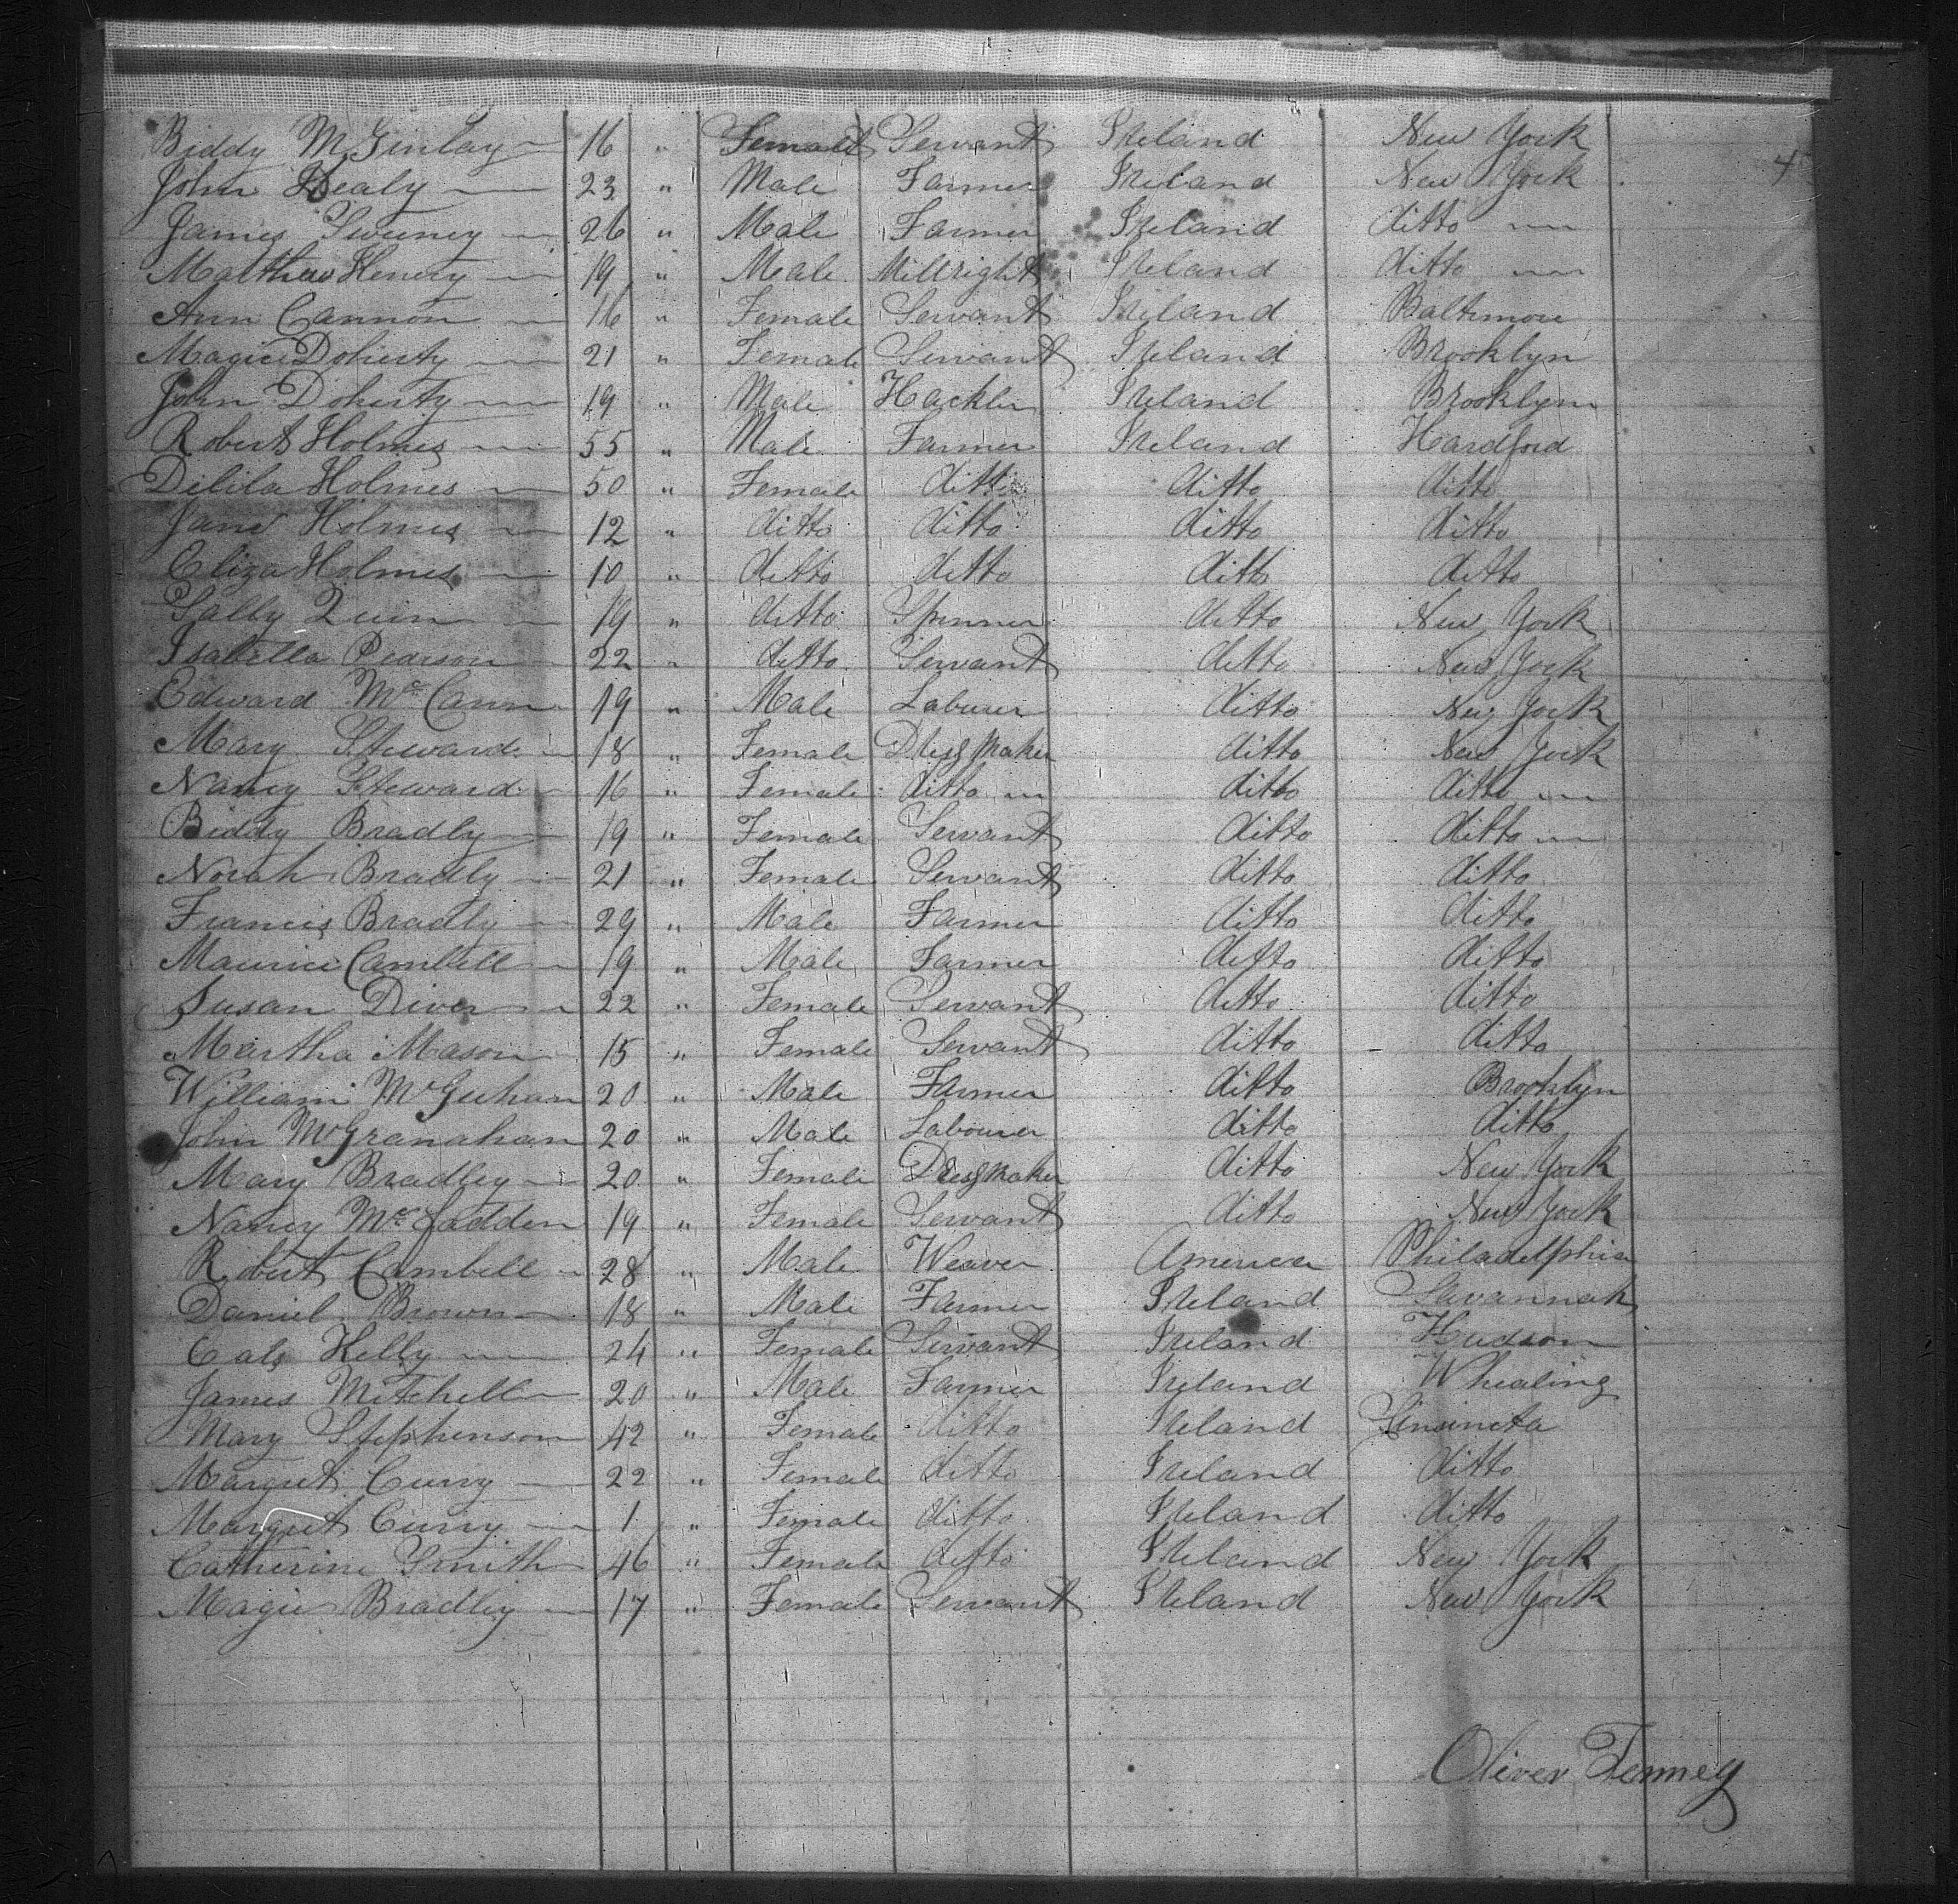 4
Biddy McGinlay 16 " Female Servant Ireland New York
John Healy 23 " Male Farmer Ireland New York
James Sweeney 26 " Male Farmer Ireland ditto
Matthew Henery 19 " Male Millright Ireland ditto
Ann Cannon 16 " Female Servant Ireland Baltimore
Magie Doherty 21 " Female Servant Ireland Brooklyn
John Doherty 19 " Male Hackler Ireland Brooklyn
Robert Holmes 55 " Male Farmer Ireland Hardford
Delila Holmes 50 " Female ditto ditto ditto
Jane Holmes 12 " ditto ditto ditto ditto
Eliza Holmes 10 " ditto ditto ditto ditto
Sally Quin 19 " ditto Spinner ditto New York
Isabella Pearson 22 " ditto Servant ditto New York
Edward Mc Cann 19 " Male Laburer ditto New York
Mary Steward 18 " Female Dress Maker ditto New York
Nancy Steward 16 " Female ditto ditto ditto
Biddy Bradly 19 " Female Servant ditto ditto
Norah Bradly 21 " Female Servant ditto ditto
Francis Bradly 29 " Male Farmer ditto ditto
Maurice Cambell 19 " Male Farmer ditto ditto
Susan Diver 22 " Female Servant ditto ditto
Martha Mason 15 " Female Servant ditto ditto
William McGuhan 20 " Male Farmer ditto Brooklyn
John McGranahan 20 " Male Labourer ditto ditto
Mary Bradley 20 " Female Dress Maker ditto New York
Nancy Mc Fadden 19 " Female Servant ditto New York
Robert Cambell 28 " Male Weaver America Philadelphia
Daniel Brown 18 " Male Farmer Ireland Savannah
Kelly 24 " Female Servant Ireland Hudson
James Mitchell 20 " Male Farmer Ireland Whealing
Mary Stephenson 42 " Female ditto Ireland Sinsineta
Margret Curry 22 " Female ditto Ireland ditto
Margret Curry 1 " Female ditto Ireland ditto
Catherine Smith 46 " Female ditto Ireland New York
Magie Bradley 17 " Female Servant Ireland New York
Oliver Tenney